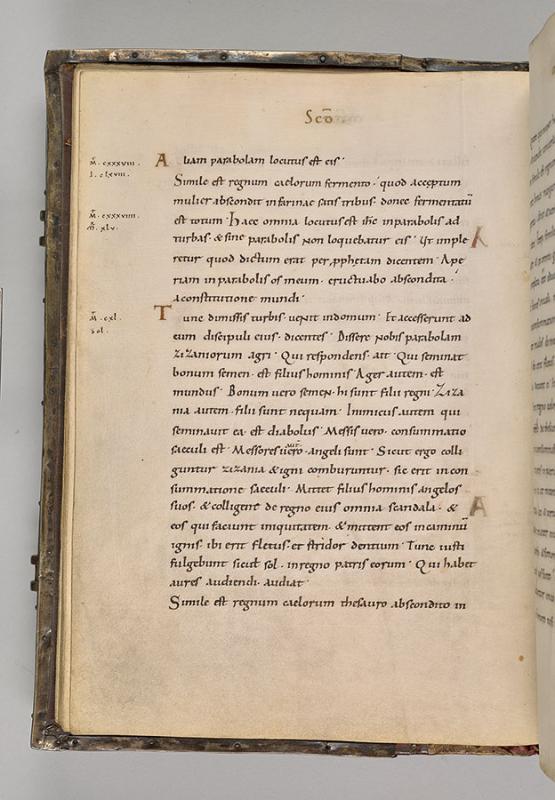 Scō
m̄. cxxxviii.
l. clxviii.
Aliam parabolam locutus est eis.
Simile est regnum caelorum fermento. quod acceptum
mulier abscondit in farinae satis tribus. donec fermentatū
m̄. cxxxviiii.
m̄. xlv.
est totum. Haec omnia locutus est ih̄c in parabolis ad
turbas. & sine parabolis non loquebatur eis. Ut imple
retur quod dictum erat per ꝓphetam dicentem. Ape
riam in parabolis os meum. eructuabo abscondita.
a constitutione mundi.
m̄. cxl.
sol.
Tunc dimissis turbis venit in domum. Et accesserunt ad
eum discipuli eius. dicentes. Dissere nobis parabolam
zizaniorum agri. Qui respondens. ait. Qui seminat
bonum semen. est filius hominis. Ager autem. est
mundus. Bonum vero semen. hi sunt filii regni. Ziza
nia autem. filii sunt nequam. Inimicus autem qui
seminavit ea. est diabolus. Messis vero. consummatio
saeculi est. Messores vero aut̄. angeli sunt. Sicut ergo colli
guntur zizania & igni comburuntur. sic erit in con
summatione saeculi. Mittet filius hominis angelos
suos. & colligent de regno eius omnia scandala. &
eos qui faciunt iniquitatem. & mittent eos in caminū
ignis. ibi erit fletus. et stridor dentium. Tunc iusti
fulgebunt sicut sol. in regno patris eorum. Qui habet
aures audiendi. audiat.
Simile est regnum caelorum thesauro abscondito in